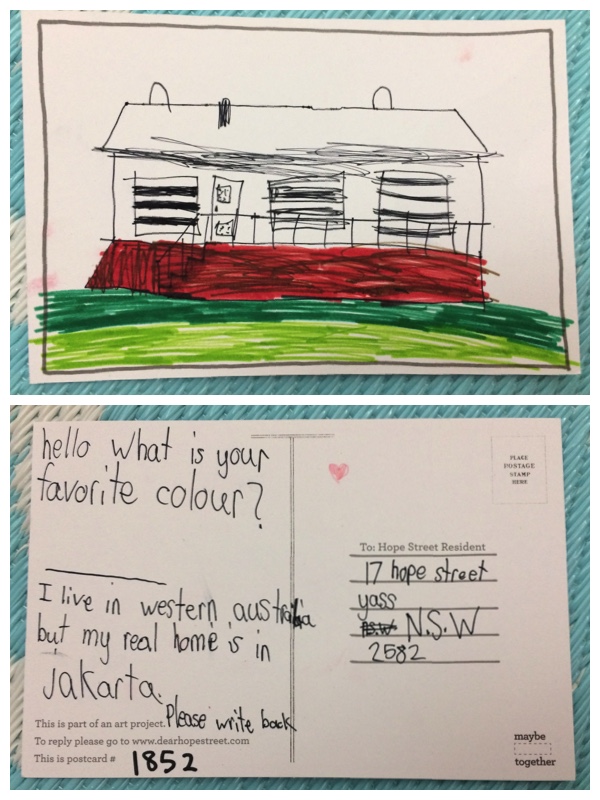 hello what is your
favorite colour?
I live in western australia
but my real home is in
Jakarta.
Please write back
This is part of an art project.
To reply please go to www.dearhopestreet.com
This is postcard # 1852
PLACE
POSTAGE
STAMP
HERE
To: Hope Street Resident
17 hope street
yass
N.S.W
2582
maybe
together